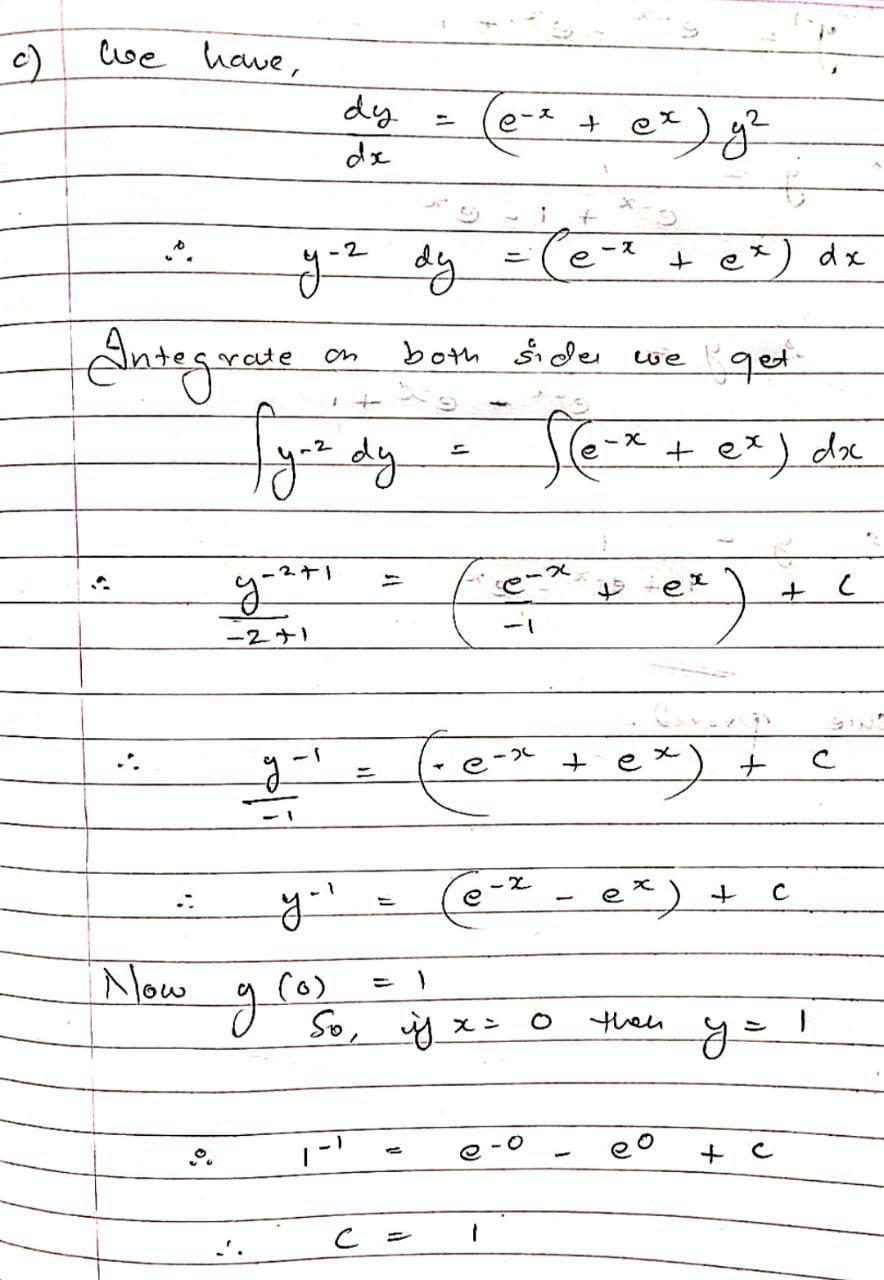 c) We have,
dy/dx = (e^-x + e^x) y^2
∴ y^-2 dy = (e^-x + e^x) dx
Integrate on both sides we get
∫y^-2 dy = ∫(e^-x + e^x) dx
∴ y^-2+1/-2+1 = (e^-x/-1 + e^x) + c
∴ y^-1/-1 = (-e^-x + e^x) + c
∴ y^-1 = (e^-x - e^x) + c
Now y(0) = 1
So, if x = 0 then y = 1
∴ 1^-1 = e^-0 - e^0 + c
∴ c = 1